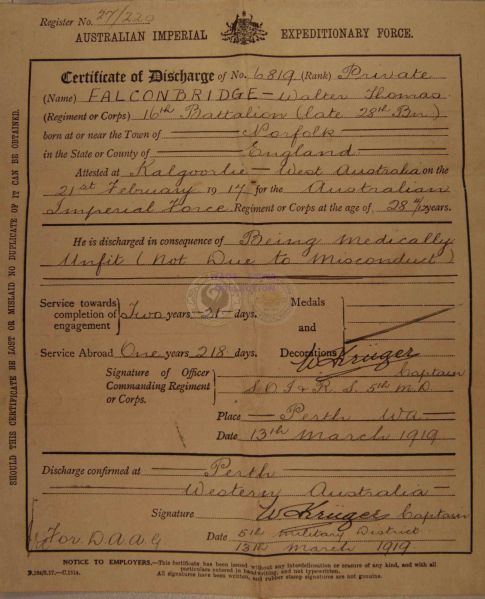 Register No. 27/220
AUSTRALIAN IMPERIAL EXPEDITIONARY FORCE.
Certificate of Discharge of No. 6819 (Rank) Private
(Name) FALCONBRIDGE – Walter Thomas
(Regiment or Corps) 16th Battalion (late 28th Bn)
born at or near the Town of Norfolk
in the State or County of England
Attested at Kalgoorlie West Australia on the
21st February 1917 for the Australian
Imperial Force Regiment or Corps at the age of 28 years.
He is discharged in consequence of Being Medically
Unfit (Not Due to Misconduct)
Service towards completion of engagement } Two years 21 days.
Medals and Decorations
Service Abroad One years 218 days.
Signature of Officer Commanding Regiment or Corps.
W Krüger Captain
S.O.I & R.S. 5th M.D
Place Perth WA
Date 13th March 1919
Discharge confirmed at Perth
Western Australia
Signature W Krüger Captain
For D.A.A.G
5th Military District
Date 13th March 1919
NOTICE TO EMPLOYERS.—This certificate has been issued without any interlineation or erasure of any kind, and with all
particulars entered in handwriting, and not typewritten.
All signatures have been written, and rubber stamp signatures are not genuine.
SHOULD THIS CERTIFICATE BE LOST OR MISLAID NO DUPLICATE OF IT CAN BE OBTAINED.
COLLECTION